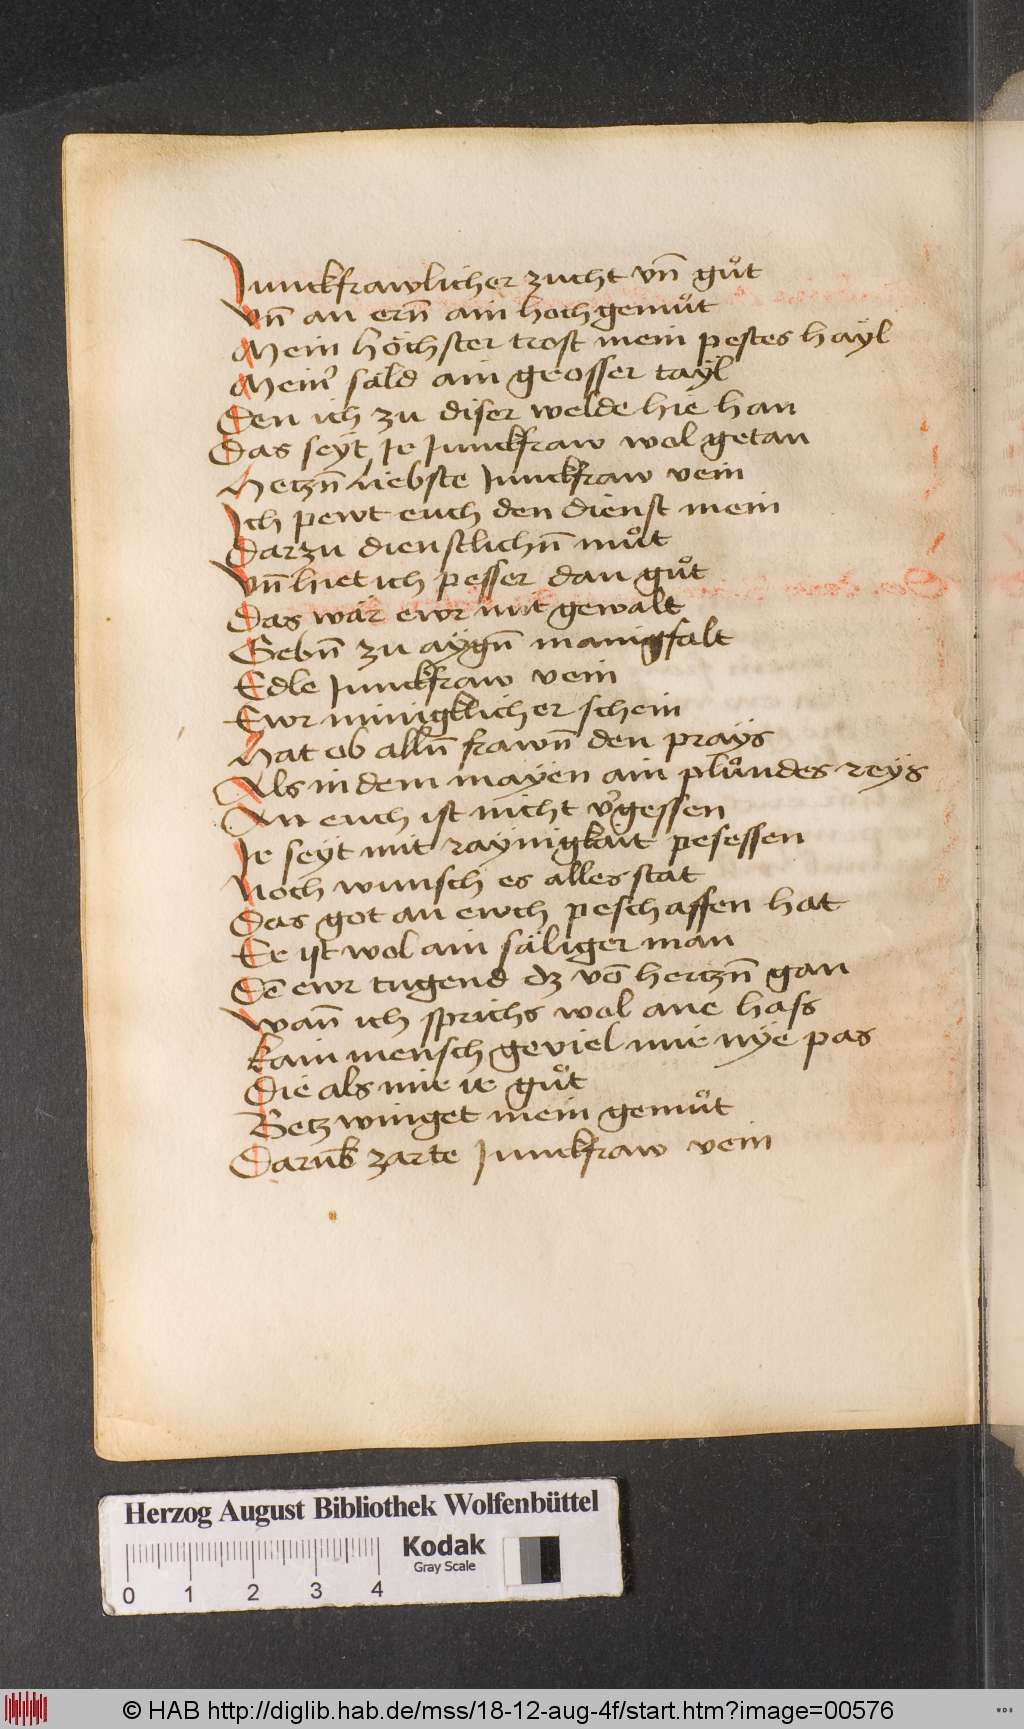 Junckfrawlicher zucht vn̄ guͦt
Vn̄ an ern̄ ain hochgemuͦt
Mein höchster trost mein pestes hayl
Mein' säld ain grosser tayl
Den ich zu diser welde hie han
Das seyt Ir Junckfraw wol getan
Hertzn̄ liebste Junckfraw vein
Ich pewt euch den dienst mein
Darzu dienstlichn̄ muͦt
Vn̄ hiet ich pesser dan guͦt
Das wär ewr mit gewalt
Gebn̄ zu aygn̄ manigfalt
Edle Junckfraw vein
Ewr minigklicher schein
Hat ob alln̄ frawn̄ den prays
Als in dem mayen ain pluͦndes reys
An euch ist nicht v'gessen
Ir seyt mit raynigkait pesessen
Noch wunsch es alles stat
Das got an ewch peschaffen hat
Er ist wol ain säliger man
Dē ewr tugend dz vō hertzn̄ gan
Wan̄ ich sprichs wol ane hass
Kain mensch geviel mir nye pas
Die als mir ir guͦt
Betzwinget mein gemuͦt
Darūb zarte Junckfraw vein
Herzog August Bibliothek Wolfenbüttel
Kodak
Gray Scale
0 1 2 3 4
© HAB http://diglib.hab.de/mss/18-12-aug-4f/start.htm?image=00576